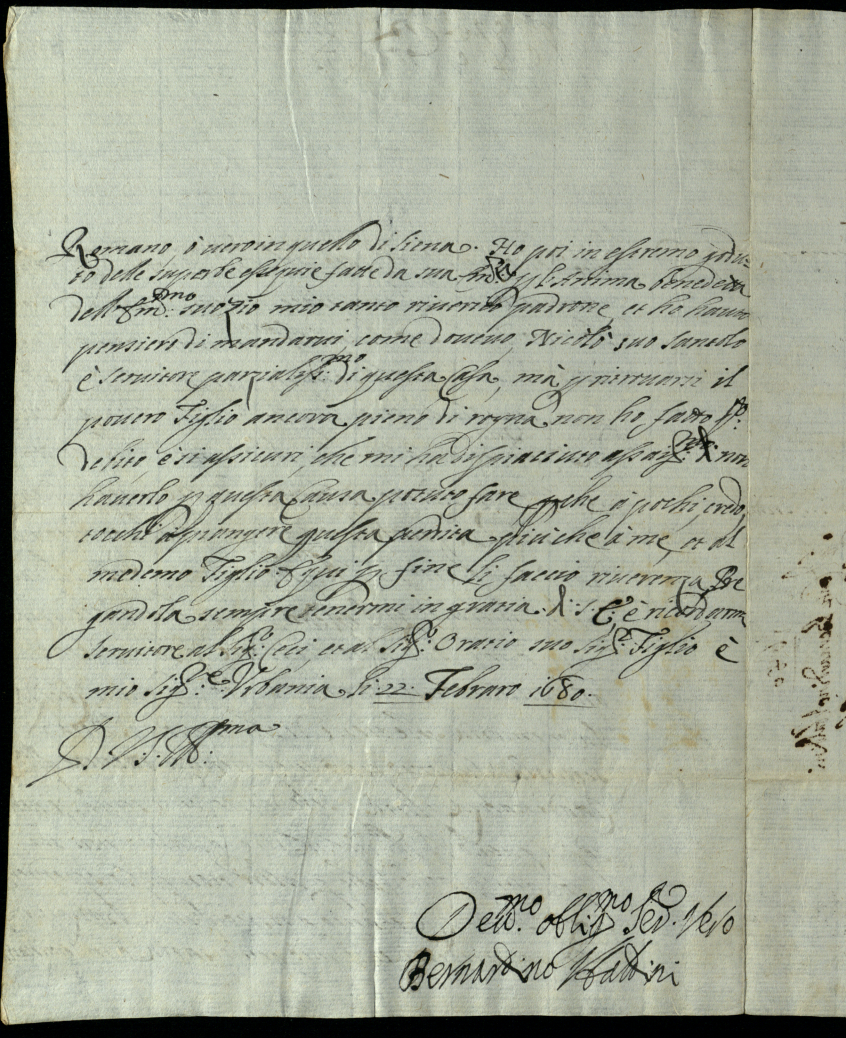 Romano, ò vero in quello di Siena. Ho poi in estremo godu-
to delle superbe essequie fatte da sua p l'Anima benedetta
dell' Em.mo suo zio mio tanto riverito padrone, et ho havuto
pensiero di mandarvi, come dovevo, Nicolò suo
è servitore parzialiss:mo di questa Casa, mà p ritrovarsi il
povero Figlio ancora pieno di rogna non ho fatto q.to
debito, è si assicuri, che mi ha dispiaciuto assai non
haverlo p questa Causa potuto fare p che à pochi, credo,
tocchi à piangere questa perdita più che à me, et al
medemo Figlio. E qui p fine li faccio riverenza Pre
gandola sempre tenermi in gratia di S. E. è ricordarmi
servitore al Sig.r Ceci, et al Sig.r Oratio suo Sig.r Figlio è
mio Sig.re Urbania li 22 Febraro 1680.
D. V. S. Ill:ma
Dev.mo oblig.mo Ser.re Vero
Bernardino